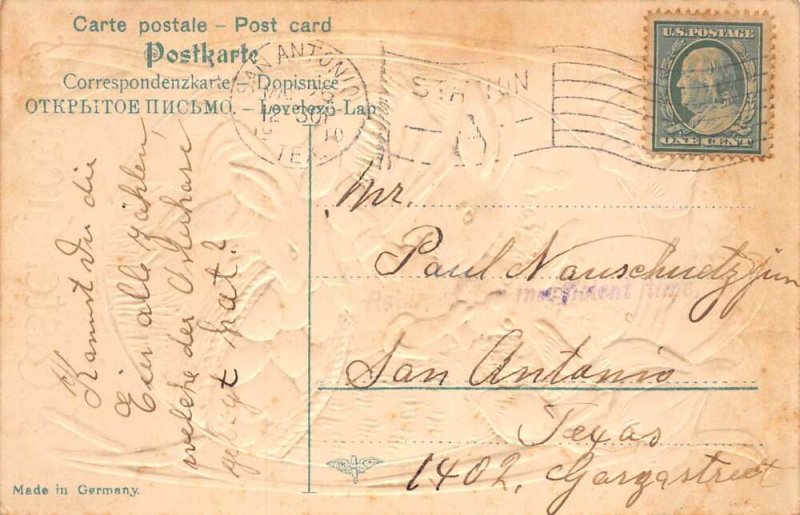 Carte postale – Post card
Postkarte
Correspondenzkarte – Dopisnice
ОТКРЫТОЕ ПИСЬМО. – Levelező-Lap
SAN ANTONIO
12 30P
TEX.
STATION
U.S.POSTAGE
ONE CENT
Kannst Du die
Eier alle zählen,
welche der Osterhase
gelegt hat?
Mr.
Paul Nauschuetz jun
insufficient
San Antonio
Texas
1402, Garzastreet
Made in Germany.